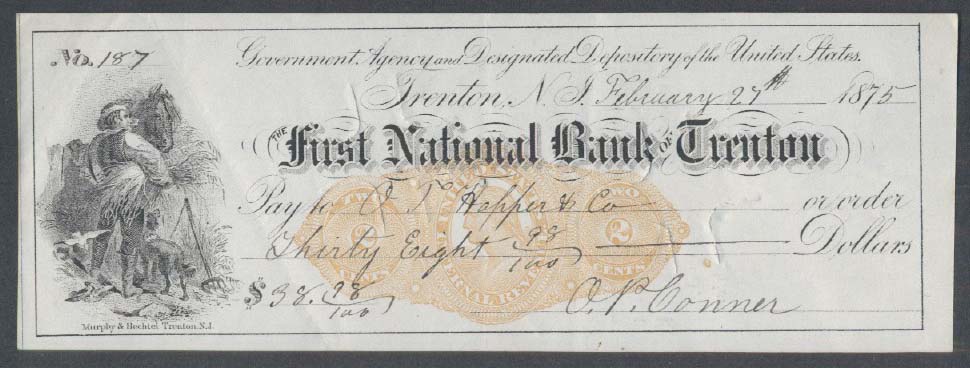 No. 187
Government Agency and Designated Depository of the United States.
Trenton, N. J. February 27th 1875
THE First National Bank OF Trenton
Pay to Hopper & Co or order
Thirty Eight 98/100 Dollars
$38.98/100
O. P. Conner
TWO 2 CENTS
INTERNAL REVENUE
TWO 2 CENTS
Murphy & Bechtel Trenton, N.J.